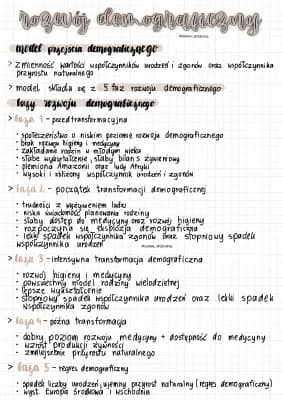 rozwój demograficzny
model przejścia demograficznego
> zmienność wartości współczynników urodzeń i zgonów oraz współczynnika
przyrostu naturalnego
> model składa się z 5 faz rozwoju demograficznego
fazy rozwoju demograficznego
> faza 1 - przedtransformacyjna
• społeczeństwo o niskim poziomie rozwoju demograficznego
• brak rozwoju higieny i medycyny
• zakładanie rodzin w młodym wieku
• słabe wykształcenie, słaby bilans żywieniowy
• plemiona Amazonii oraz ludy Afryki
• wysoki i zbliżony współczynnik urodzeń i zgonów
> faza 2 - początek transformacji demograficznej
• trudności z wyżywieniem ludu
• niska świadomość planowania rodziny
• słaby dostęp do medycyny oraz rozwój higieny
• rozpoczyna się eksplozja demograficzna
• lekki spadek współczynnika zgonów oraz stopniowy spadek
współczynnika urodzeń
> faza 3 - intensywna transformacja demograficzna
• rozwój higieny i medycyny
• powszechny model rodziny wielodzietnej
• lepsze wykształcenie
• stopniowy spadek współczynnika urodzeń oraz lekki spadek
współczynnika zgonów
> faza 4 - późna transformacja
• dobry poziom rozwoju medycyny + dostępność do medycyny
• wzrost produkcji żywności
• zmniejszenie przyrostu naturalnego
> faza 5 - regres demograficzny
• spadek liczby urodzeń, ujemny przyrost naturalny (regres demograficzny)
• wyst. Europa środkowa i wschodnia